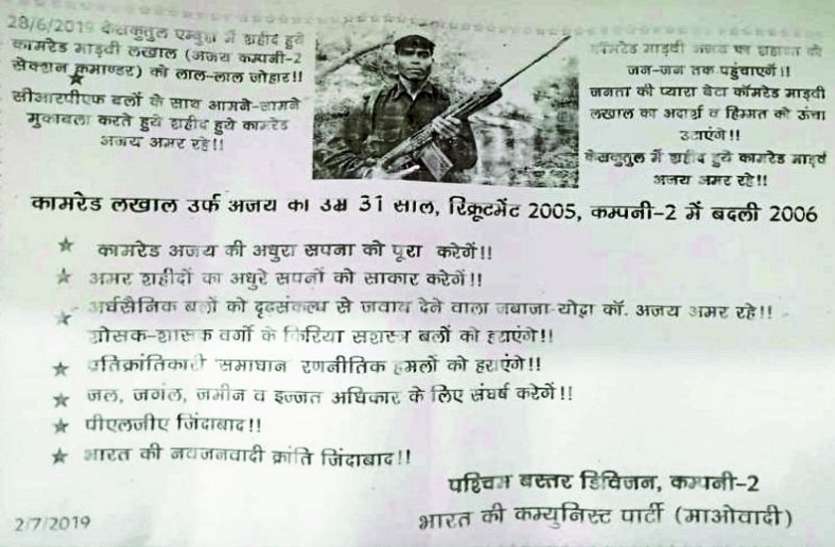 28/6/2019 केशकुतुल एम्बुस में शहीद हुये
कामरेड माड़वी लखाल (अजय कम्पनी-2
सेक्शन कमाण्डर) को लाल-लाल जोहार!!
सीआरपीएफ बलों के साथ आमने-सामने
मुकाबला करते हुये शहीद हुये कामरेड
अजय अमर रहे!!
कॉमरेड माड़वी अजय का शहादत को
जन-जन तक पहुंचाएगें!!
जनता की प्यारा बेटा कॉमरेड माड़वी
लखाल का अदार्श व हिम्मत को ऊंचा
उठाएंगे!!
केशकुतुल में शहीद हुये कामरेड माड़वी
अजय अमर रहे!!
कामरेड लखाल उर्फ अजय का उम्र 31 साल, रिक्रूटमेंट 2005, कम्पनी-2 में बदली 2006
कामरेड अजय की अधुरा सपना को पूरा करेगें!!
अमर शहीदों का अधुरे सपनों को साकार करेगें!!
अर्धसैनिक बलों को दृढ़संकल्प से जवाब देने वाला जबाजा-योद्वा कॉ. अजय अमर रहे!!
शोसक-शासक वर्गो के किरिया सशस्त्र बलों को हराएंगे!!
प्रतिक्रांतिकारी समाधान रणनीतिक हमलों को हराएंगे!!
जल, जगंल, जमीन व इज्जत अधिकार के लिए संघर्ष करेगें!!
पीएलजीए जिंदाबाद!!
भारत की नवजनवादी क्रांति जिंदाबाद!!
पश्चिम बस्तर डिविजन, कम्पनी-2
भारत की कम्युनिस्ट पार्टी (माओवादी)
2/7/2019